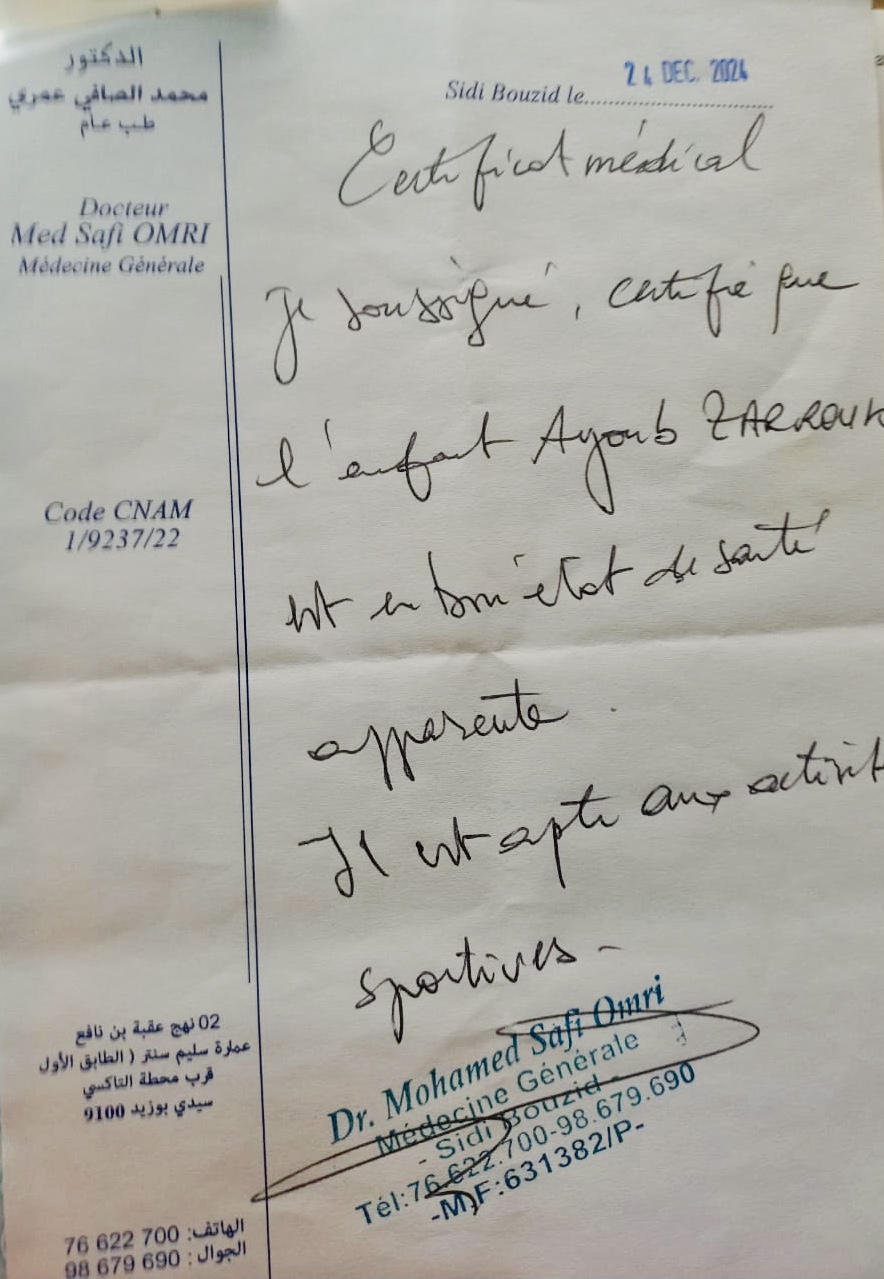 الدكتور
محمد الصافي عمري
طب عام
Docteur
Med Safi OMRI
Médecine Générale
Code CNAM
1/9237/22
Sidi Bouzid le 24 DEC. 2024
Certificat médical
Je soussigné, certifié que
l'enfant Ayoub ZARROUK
est en bon état de santé
apparente.
Il est apte aux activit
sportives -
Dr. Mohamed Safi Omri
Médecine Générale
- Sidi Bouzid -
Tél:76.622.700-98.679.690
-M.F:631382/P-
02 نهج عقبة بن نافع
عمارة سليم سنتر ( الطابق الأول
قرب محطة التاكسي
سيدي بوزيد 9100
الهاتف: 76 622 700
الجوال : 98 679 690